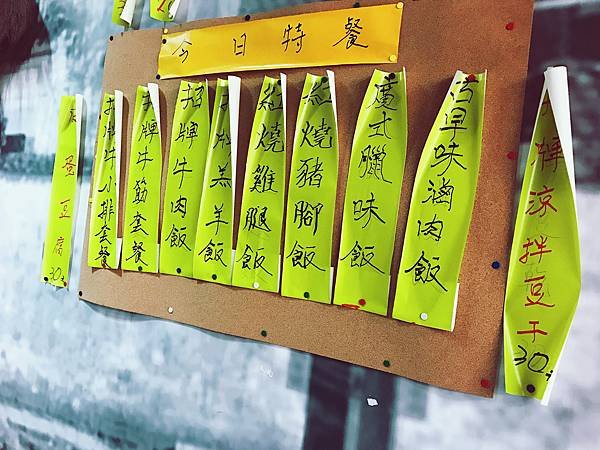 今日特餐
皮蛋豆腐 30元
招牌牛小排套餐
招牌牛筋套餐
招牌牛肉飯
招牌羔羊飯
紅燒雞腿飯
紅燒豬腳飯
廣式臘味飯
古早味滷肉飯
招牌涼拌豆干 30元